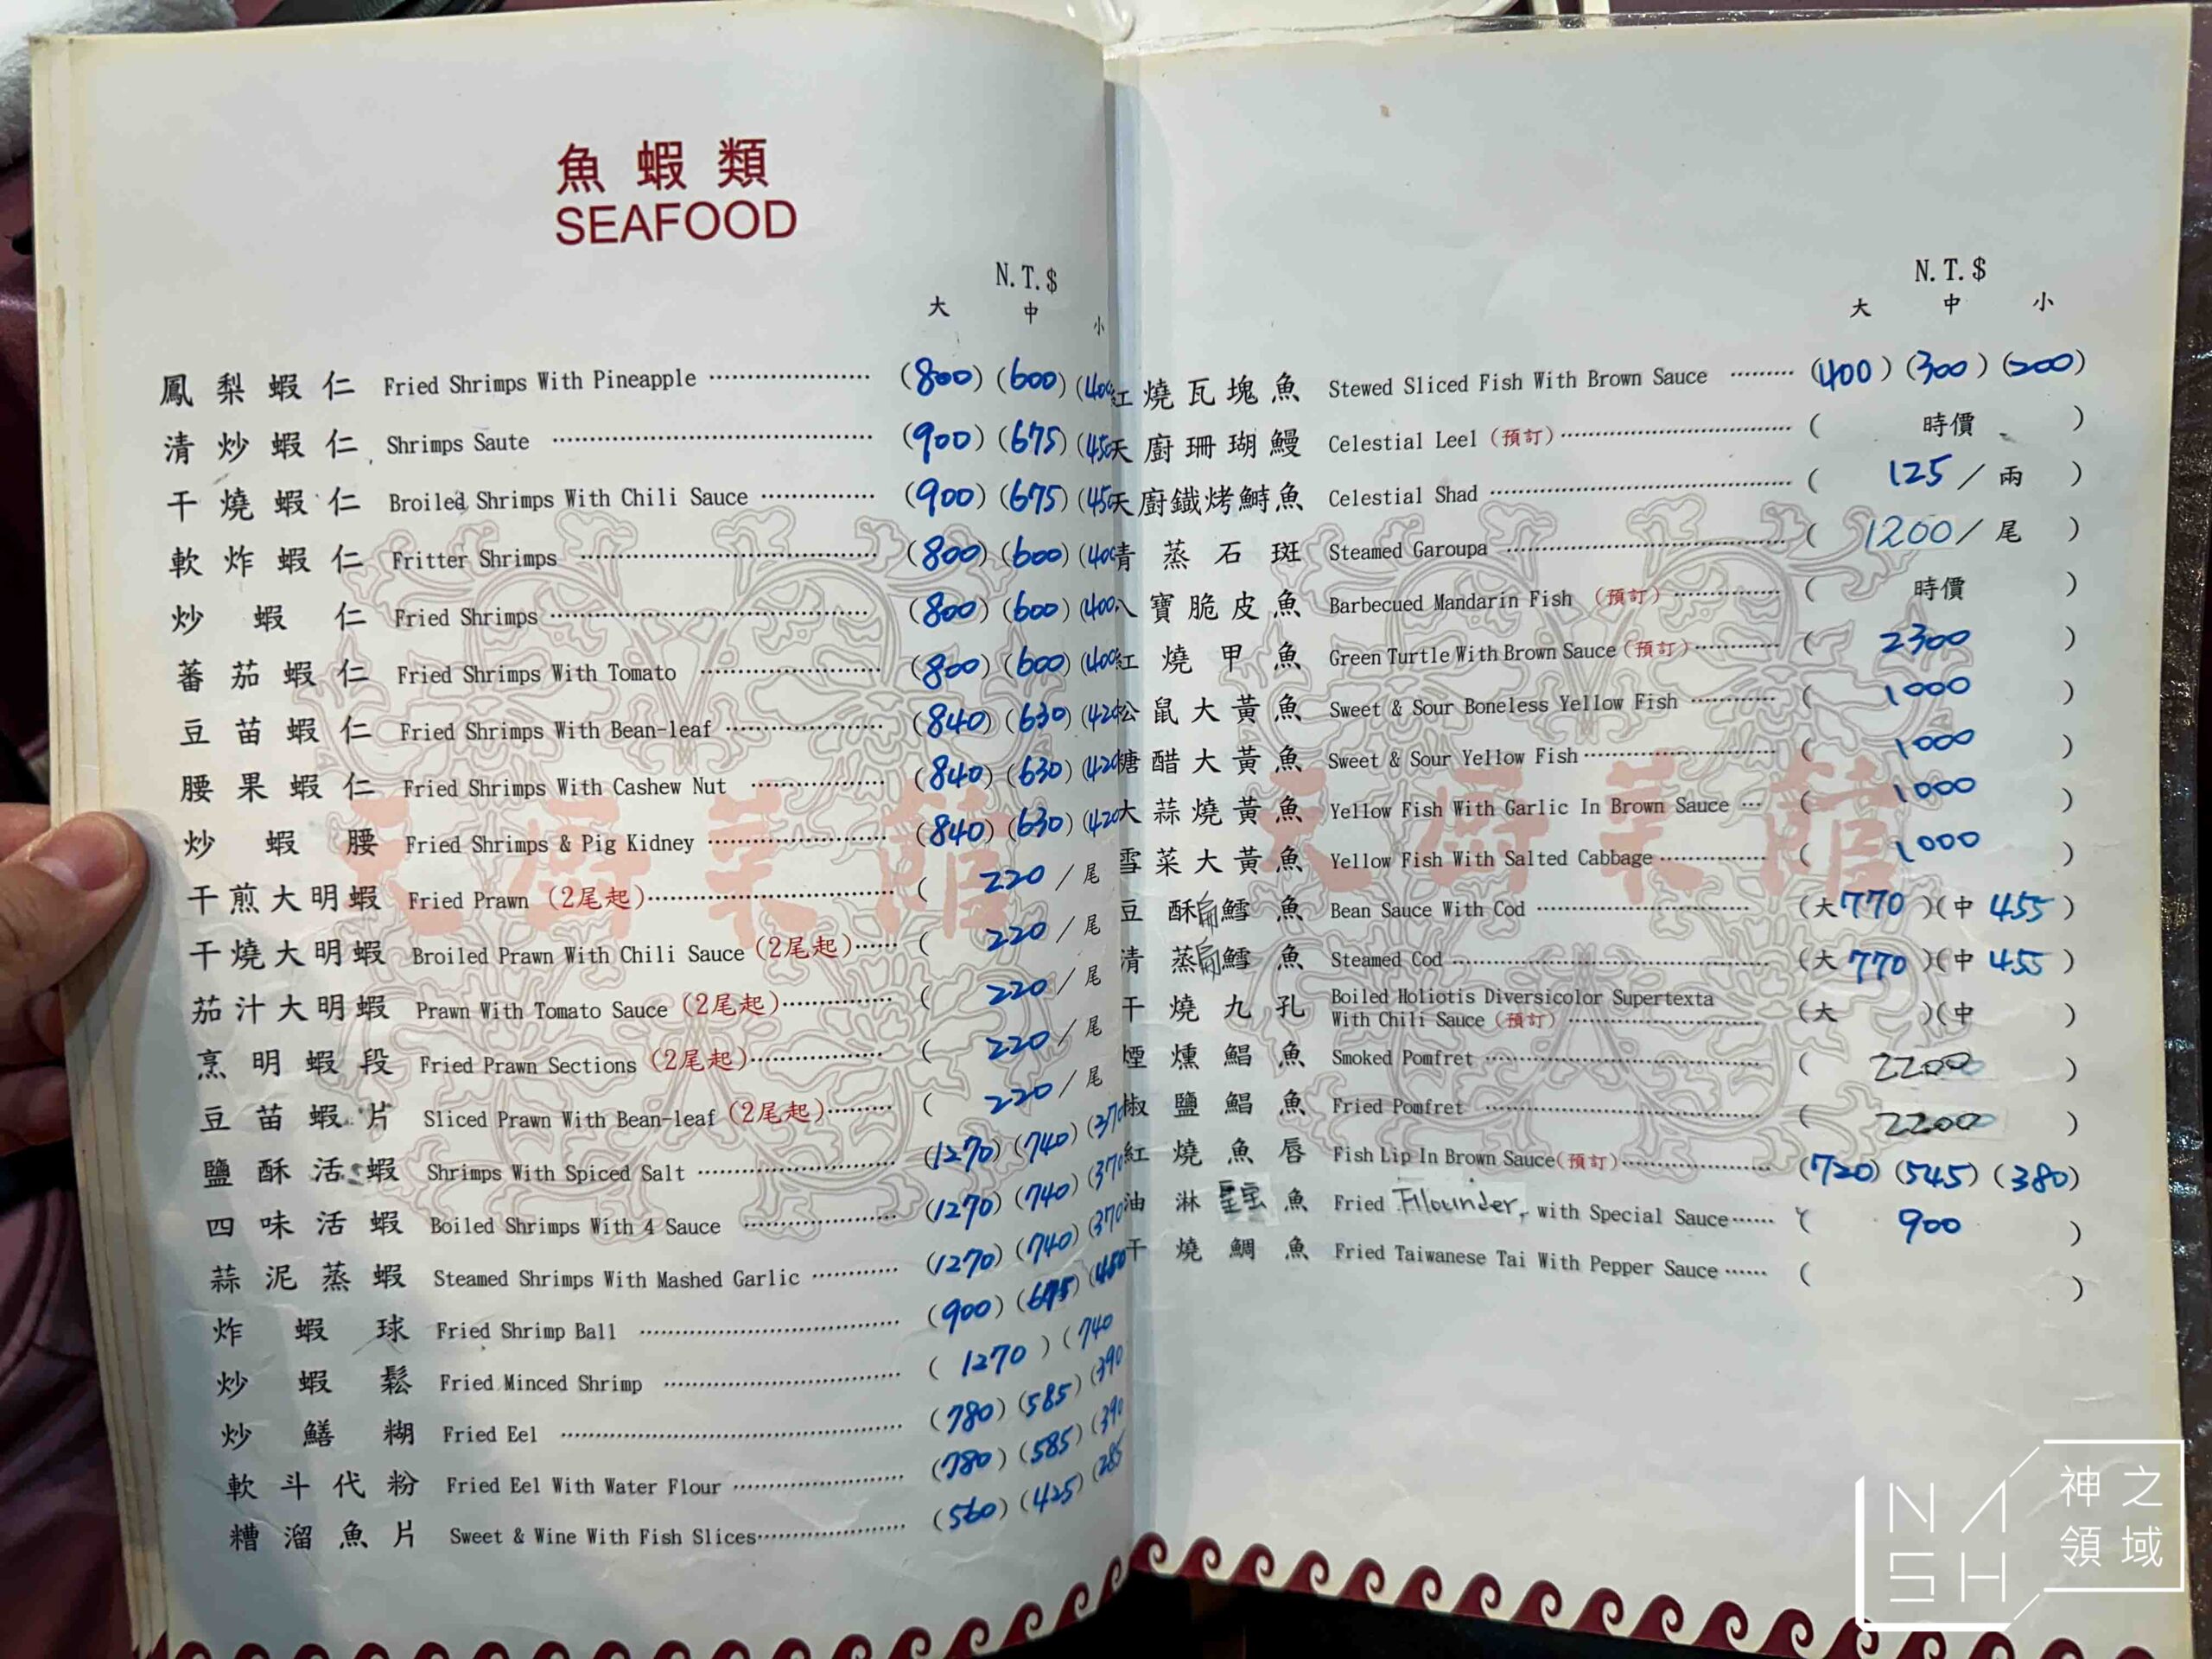 魚蝦類
SEAFOOD
N.T.$
大 中 小
鳳梨蝦仁 Fried Shrimps With Pineapple (800) (600) (400
清炒蝦仁 Shrimps Saute (900) (675) (450
干燒蝦仁 Broiled Shrimps With Chili Sauce (900) (675) (450
軟炸蝦仁 Fritter Shrimps (800) (600) (400
炒蝦仁 Fried Shrimps (800) (600) (400
蕃茄蝦仁 Fried Shrimps With Tomato (800) (600) (400
豆苗蝦仁 Fried Shrimps With Bean-leaf (840) (630) (420
腰果蝦仁 Fried Shrimps With Cashew Nut (840) (630) (420
炒蝦腰 Fried Shrimps & Pig Kidney (840) (630) (420
干煎大明蝦 Fried Prawn (2尾起) ( 220 / 尾
干燒大明蝦 Broiled Prawn With Chili Sauce (2尾起) ( 220 / 尾
茄汁大明蝦 Prawn With Tomato Sauce (2尾起) ( 220 / 尾
烹明蝦段 Fried Prawn Sections (2尾起) ( 220 / 尾
豆苗蝦片 Sliced Prawn With Bean-leaf (2尾起) ( 220 / 尾
鹽酥活蝦 Shrimps With Spiced Salt (1270) (740) (370
四味活蝦 Boiled Shrimps With 4 Sauce (1270) (740) (370
蒜泥蒸蝦 Steamed Shrimps With Mashed Garlic (1270) (740) (370
炸蝦球 Fried Shrimp Ball (900) (675) (450
炒蝦鬆 Fried Minced Shrimp ( 1270 ) ( 740
炒鱔糊 Fried Eel (780) (585) (390
軟斗代粉 Fried Eel With Water Flour (780) (585) (390
糟溜魚片 Sweet & Wine With Fish Slices (560) (425) (285
N.T.$
大 中 小
紅燒瓦塊魚 Stewed Sliced Fish With Brown Sauce (400) (300) (200)
天廚珊瑚鰻 Celestial Leel (預訂) ( 時價 )
天廚鐵烤鰣魚 Celestial Shad ( 125 / 兩 )
清蒸石斑 Steamed Garoupa ( 1200 / 尾 )
八寶脆皮魚 Barbecued Mandarin Fish (預訂) ( 時價 )
紅燒甲魚 Green Turtle With Brown Sauce (預訂) ( 2300 )
松鼠大黃魚 Sweet & Sour Boneless Yellow Fish ( 1000 )
糖醋大黃魚 Sweet & Sour Yellow Fish ( 1000 )
大蒜燒黃魚 Yellow Fish With Garlic In Brown Sauce ( 1000 )
雪菜大黃魚 Yellow Fish With Salted Cabbage ( 1000 )
豆酥扁鱈魚 Bean Sauce With Cod (大 770 )(中 455 )
清蒸扁鱈魚 Steamed Cod (大 770 )(中 455 )
干燒九孔 Boiled Holiotis Diversicolor Supertexta
With Chili Sauce (預訂) (大 )(中 )
煙燻鯧魚 Smoked Pomfret ( 2200 )
椒鹽鯧魚 Fried Pomfret ( 2200 )
紅燒魚唇 Fish Lip In Brown Sauce (預訂) (720) (545) (380)
油淋魚 Fried Fllounder, with Special Sauce ( 900 )
干燒鯛魚 Fried Taiwanese Tai With Pepper Sauce ( )
天廚菜館
天廚菜館
NASH
神之領域